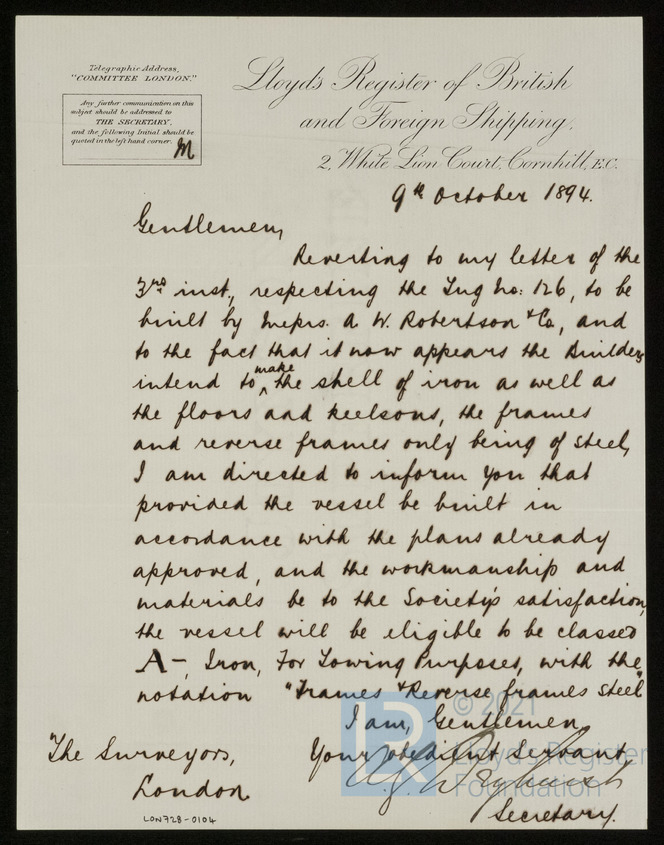 Telegraphic Address,
"COMMITTEE LONDON."
Any further communication on this
subject should be addressed to
THE SECRETARY,
and the following Initial should be
quoted in the left hand corner.
M
Lloyd's Register of British
and Foreign Shipping,
2, White Lion Court, Cornhill, E.C.
9th October 1894.
Gentlemen,
Reverting to my letter of the
3rd inst., respecting the Tug No: 126, to be
built by Messrs. A. W. Robertson & Co., and
to the fact that it now appears the Builders
intend to make the shell of iron as well as
the floors and keelsons, the frames
and reverse frames only being of steel,
I am directed to inform you that
provided the vessel be built in
accordance with the plans already
approved, and the workmanship and
materials be to the Society's satisfaction,
the vessel will be eligible to be classed
A-, Iron, For Towing Purposes, with the
notation "Frames & Reverse frames Steel"
I am, Gentlemen,
Your obedient Servant
Secretary.
The Surveyors,
London
LON728-0104
LR
© 2021
Lloyd's Register
Foundation